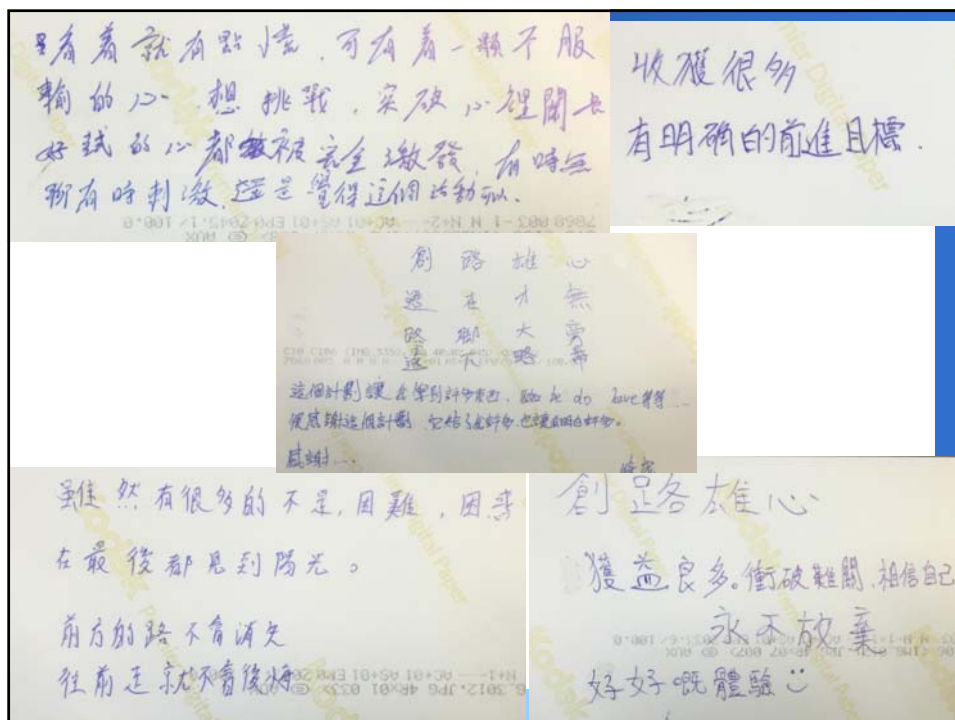 看着就有點慌,可有着一顆不服
輸的心,想挑戰,突破心理關卡
好試的心都被完全激發,有時無
聊有時刺激,還是覺得這個活動可以.
收獲很多
有明确的前進目標.
創路雄心
過在才無
路腳大旁
遠下略
這個計劃讓我學到許多東西, love等等...
很感謝這個計劃,它給了我好多,也讓我明白好多。
感謝...
雖然有很多的不足,困難,
在最後都見到陽光。
前方的路不會消失
往前走就不會後悔
創路雄心
獲益良多。衝破難關,相信自己
永不放棄
好好嘅體驗